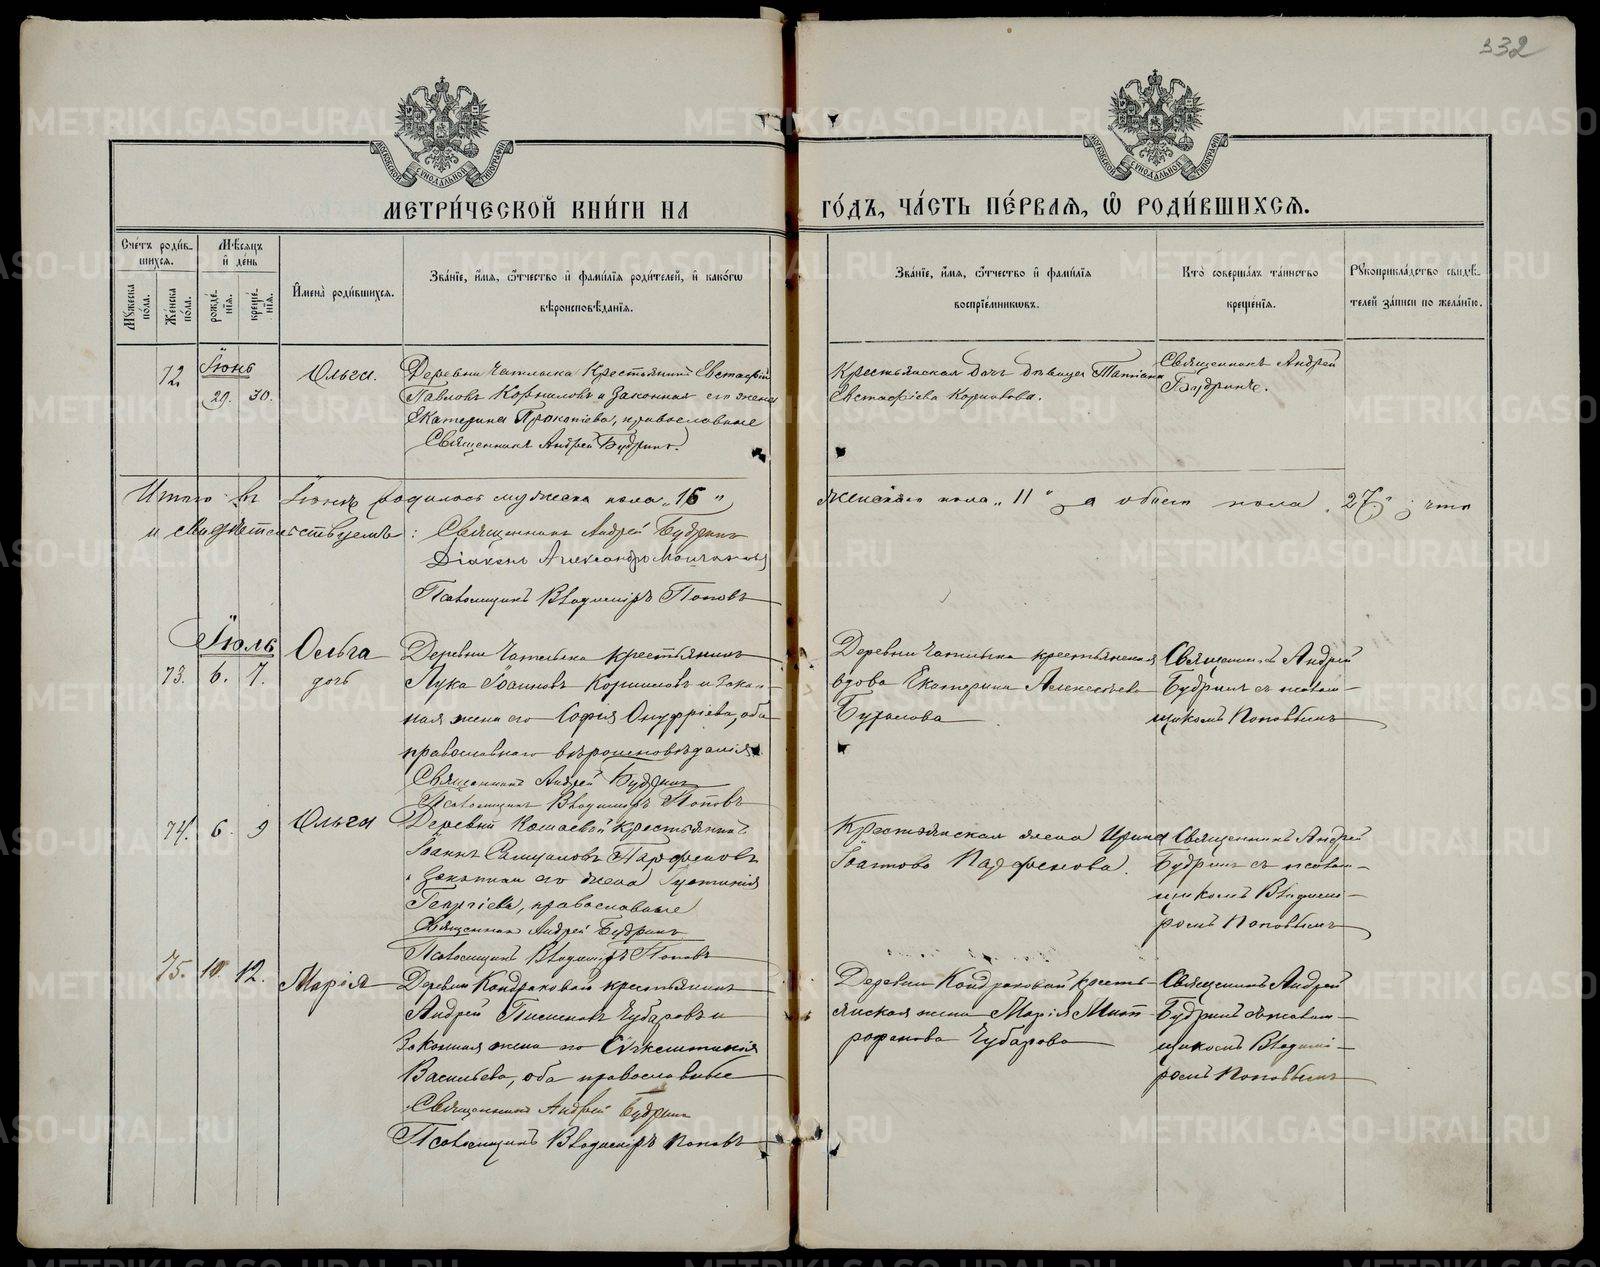 332
МЕТРИ́ЧЕСКОЙ КНИ́ГИ НА ГО́ДЪ, ЧА́СТЬ ПЕ́РВАЯ, Ѽ РОДИ́ВШИХСЯ.
Сче́тъ роди́вшихся.
Му́жеска по́ла.
Же́нска по́ла.
Мѣ́сяцъ и де́нь
рожде́нїя.
креще́нїя.
Имена̀ роди́вшихся.
Зва́нїе, и́мя, ѻ́тчество и фами́лїя роди́телей, и како́гѡ
вѣроисповѣ́данїя.
Зва́нїе, и́мя, ѻ́тчество и фами́лїя
воспрїе́мниковъ.
Кто̀ соверша́лъ та́инство
креще́нїя.
Рукоприкла́дство свидѣ́-
телей за́писи по жела́нїю.
72.
Іюнь
29. 30.
Ольга.
Деревни Чатлыка Крестьянинъ Евстафій
Павловъ Корниловъ и законная его жена
Екатерина Прокопіева, православные
Священникъ Андрей Будринъ.
Крестьянская дочь девица Татіана
Евстафіева Корнилова.
Священникъ Андрей
Будринъ.
Итого въ Іюнѣ родилось мужеска пола „16" женскаго пола „11" а обоего пола „27"; что
и свидѣтельствуемъ: Священникъ Андрей Будринъ
Діаконъ Александръ
Псаломщикъ Владиміръ Поповъ
Іюль
73. 6. 7.
Ольга
дочь
Деревни Чатлыка крестьянинъ
Лука Іоанновъ Корниловъ и закон-
ная жена его Софія Онуфріева, оба
православнаго вѣроисповѣданія
Священникъ Андрей Будринъ
Псаломщикъ Владиміръ Поповъ
Деревни Чатлыка крестьянская
вдова Екатерина Алексѣева
Священникъ Андрей
Будринъ съ псалом-
щикомъ Поповымъ
74. 6. 9
Ольга
Деревни Кошаевой крестьянинъ
Іоаннъ Самуиловъ Парфеновъ
и законная его жена Іустинія
Георгіева, православные
Священникъ Андрей Будринъ
Псаломщикъ Владиміръ Поповъ
Крестьянская жена Ирина
Іоаннова Парфенова.
Священникъ Андрей
Будринъ съ псалом-
щикомъ Владими-
ромъ Поповымъ
75. 10. 12.
Марія
Деревни Кондраковой крестьянинъ
Андрей Пименовъ Чубаровъ и
законная жена его
Васильева, оба православные
Священникъ Андрей Будринъ
Псаломщикъ Владиміръ Поповъ
Деревни Кондраковой кресть-
янская жена Марія Мит-
рофанова Чубарова
Священникъ Андрей
Будринъ съ псалом-
щикомъ Владими-
ромъ Поповымъ
METRIKI.GASO-URAL.RU